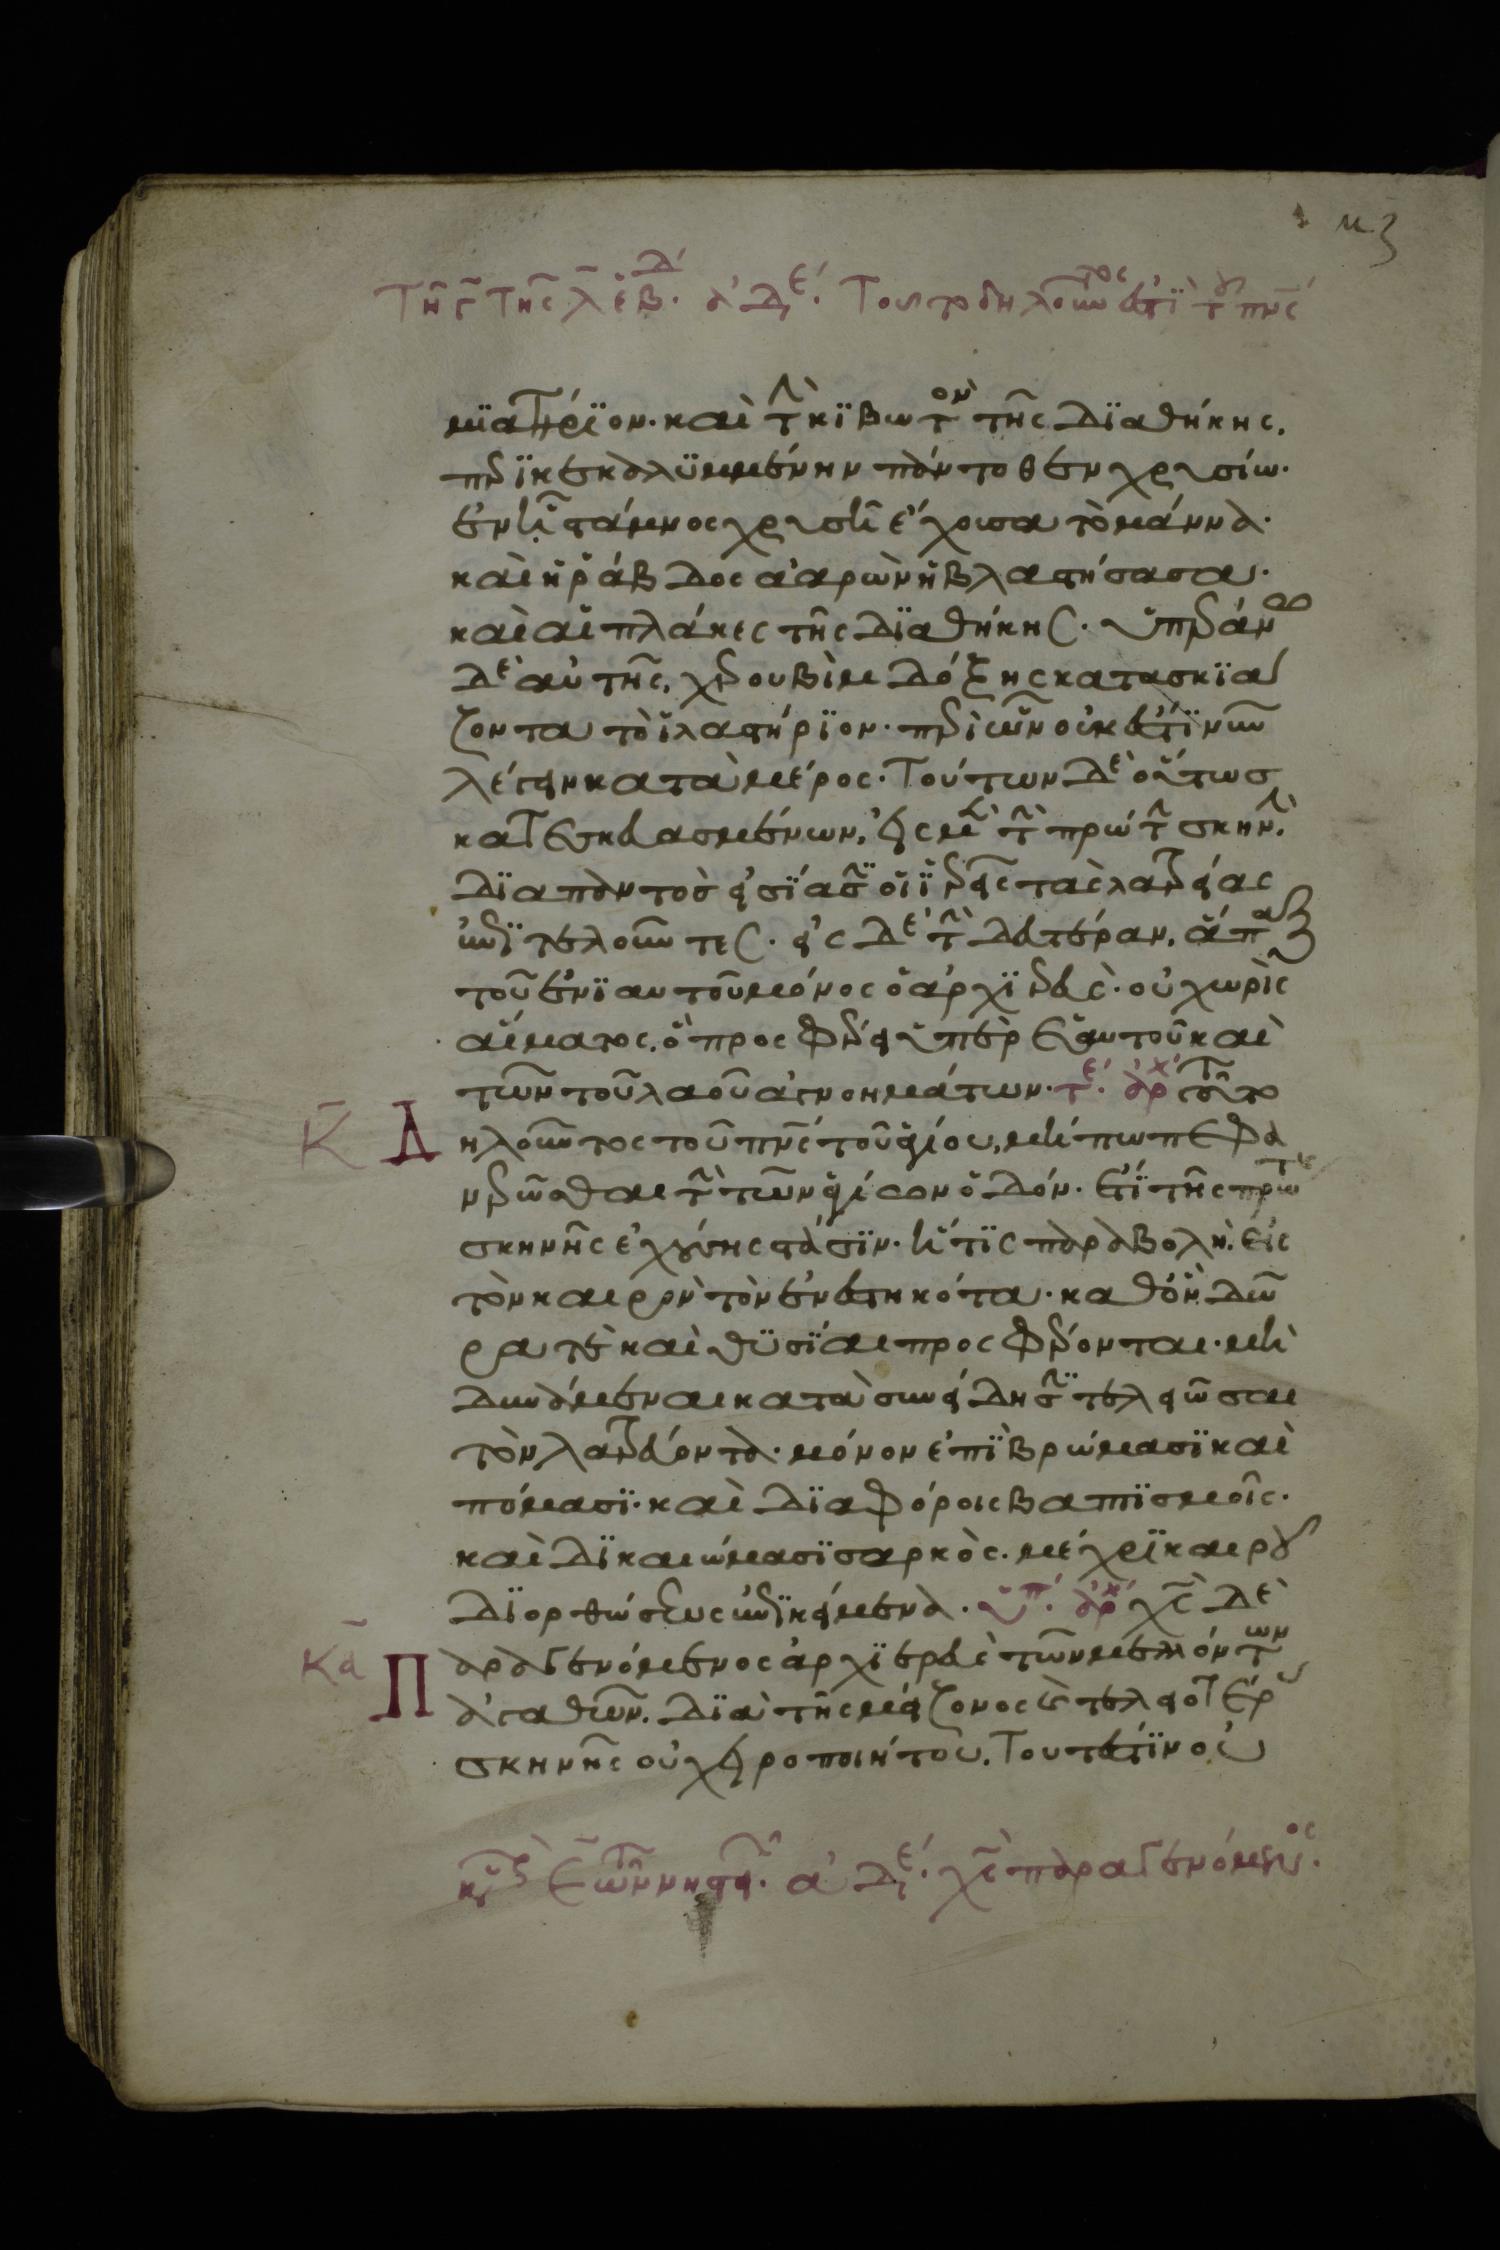 μζ
Τῇ ϛ τῆς λ ἑβδ. ἀδε. Τοῦτο δηλοῦντος ἐπὶ τοῦ πνς
μϊατήρϊον· καὶ τὴν κϊβωτὸν τῆς δϊαθήκης,
περϊκεκαλϋμμένην πάντοθεν χρυσίω·
ἐν ᾗ στάμνος χρυσῆ ἔχουσα τὸ μάννα·
καὶ ἡ ῥάβδος ἀαρὼν ἡ βλαστήσασα·
καὶ αἱ πλάκες τῆς δϊαθήκης· ὑπεράνω
δὲ αὐτῆς, χερουβὶμ δόξης κατασκϊά
ζοντα τὸ ἱλαστήρϊον· περὶ ὧν οὐκ ἔστϊ νῦν
λέγειν κατὰ μέρος· Τούτων δὲ οὕτως
κατεσκευασμένων, εἰς μὲν τὴν πρώτην σκηνὴν,
δϊαπαντὸς εἰσϊασϊν οἱ ἱερεῖς τὰς λατρείας
ἐπϊτελοῦντες· εἰς δὲ τὴν δευτέραν, ἅπαξ
τοῦ ἐνϊαυτοῦ μόνος ὁ ἀρχϊερεὺς· οὐ χωρὶς
αἵματος, ὃ προσφέρει ὑπὲρ ἑαυτοῦ καὶ
τῶν τοῦ λαοῦ ἀγνοημάτων· τε. ἀρχ τοῦτο
Κ Δηλοῦντος τοῦ πνς τοῦ ἁγίου, μήπω πεφα
νερῶσθαι τὴν τῶν ἁγίων ὁδόν· ἔτϊ τῆς πρώτης
σκηνῆς ἐχούσης στάσϊν· ἥτϊς παραβολὴ εἰς
τὸν καιρὸν τὸν ἐνεστηκότα· καθ' ὃν δῶ
ρα τὲ καὶ θϋσϊαι προσφέρονται· μὴ
δυνάμεναι κατὰ συνείδησϊν τελειῶσαι
τὸν λατρεύοντα· μόνον ἐπϊ βρώμασϊ καὶ
πόμασϊ· καὶ δϊαφόροις βαπτϊσμοῖς·
καὶ δϊκαιώμασϊ σαρκὸς· μέχρϊ καιροῦ
δϊορθώσεως ἐπϊκείμενα· ὑπ. ἀρχ χς δὲ
Κα Παραγενόμενος ἀρχϊερεὺς τῶν μελλόντων
ἀγαθῶν. δϊὰ τῆς μείζονος καὶ τελειοτέρας
σκηνῆς οὐ χειροποιήτου, Τουτέστϊν οὐ
ἀδε. χς παραγενόμενος.